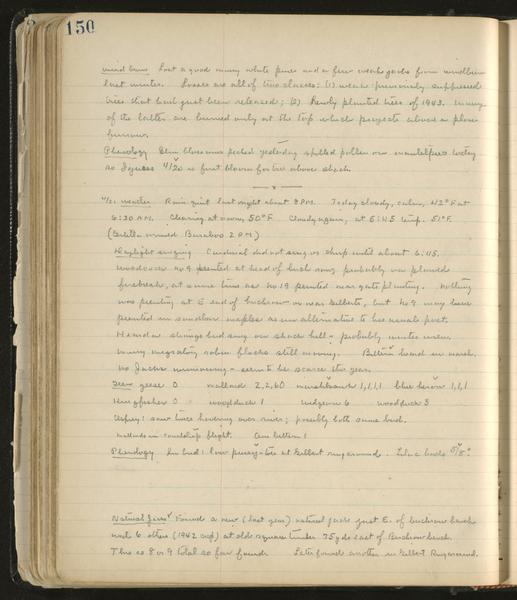 150
wind burn Lost a good many white pines and a few weak jacks from windburn
last winter. Losses are all of two classes: (1) weak previously suppressed
trees that had just been released; (2) Newly planted trees of 1943. Many
of the latter are burned only at the top which projects above a plow
furrow.
Phenology Elm blossoms picked yesterday spilled pollen on mantelpiece today
so I guess 4/20 is first bloom for tree above shack.
4/21 weather Rain quit last night about 8 PM. Today cloudy, calm, 42°F at
6:30 AM. Clearing at noon, 50°F Cloudy again, at 5:45 temp. 51°F.
(Estella arrived Baraboo 2 PM.)
Daylight singing Cardinal did not sing or chirp until about 6:15.
Woodcock no 9 peented at head of birch row, probably in planed
firebreak, at same time as no 19 peented near gate planting. Nothing
was peenting at E end of birchrow or near Gilberts, but No 9 may have
peented in sandblow maples as an alternative to his usual post.
Heard a strange bird song on shack hill - probably winter wren.
Many migratory robin flocks still moving. Bittern heard in marsh.
No Juncos murmuring - seem to be scarce this year.
Seen geese 0 mallard 2,2,60 marshhawk 1,1,1,1 blue heron 1,1,1
Kingfisher 0 woodduck 1 widgeon 6 woodduck 3
Osprey: saw twice hovering over river; possibly both same bird.
Mallards in courtship flight. Am bittern 1
Phenology In bud: low pussy-toe at Gilbert ringaround. Lilac buds
Natural Jacks Found a new (last year) natural jack just E. of birchrow bench
with 6 others (1942 crop) at old square timber 75 yds east of Birchrow bench.
This is 8 or 9 total so far found. Later found another in Gilbert Ringaround.